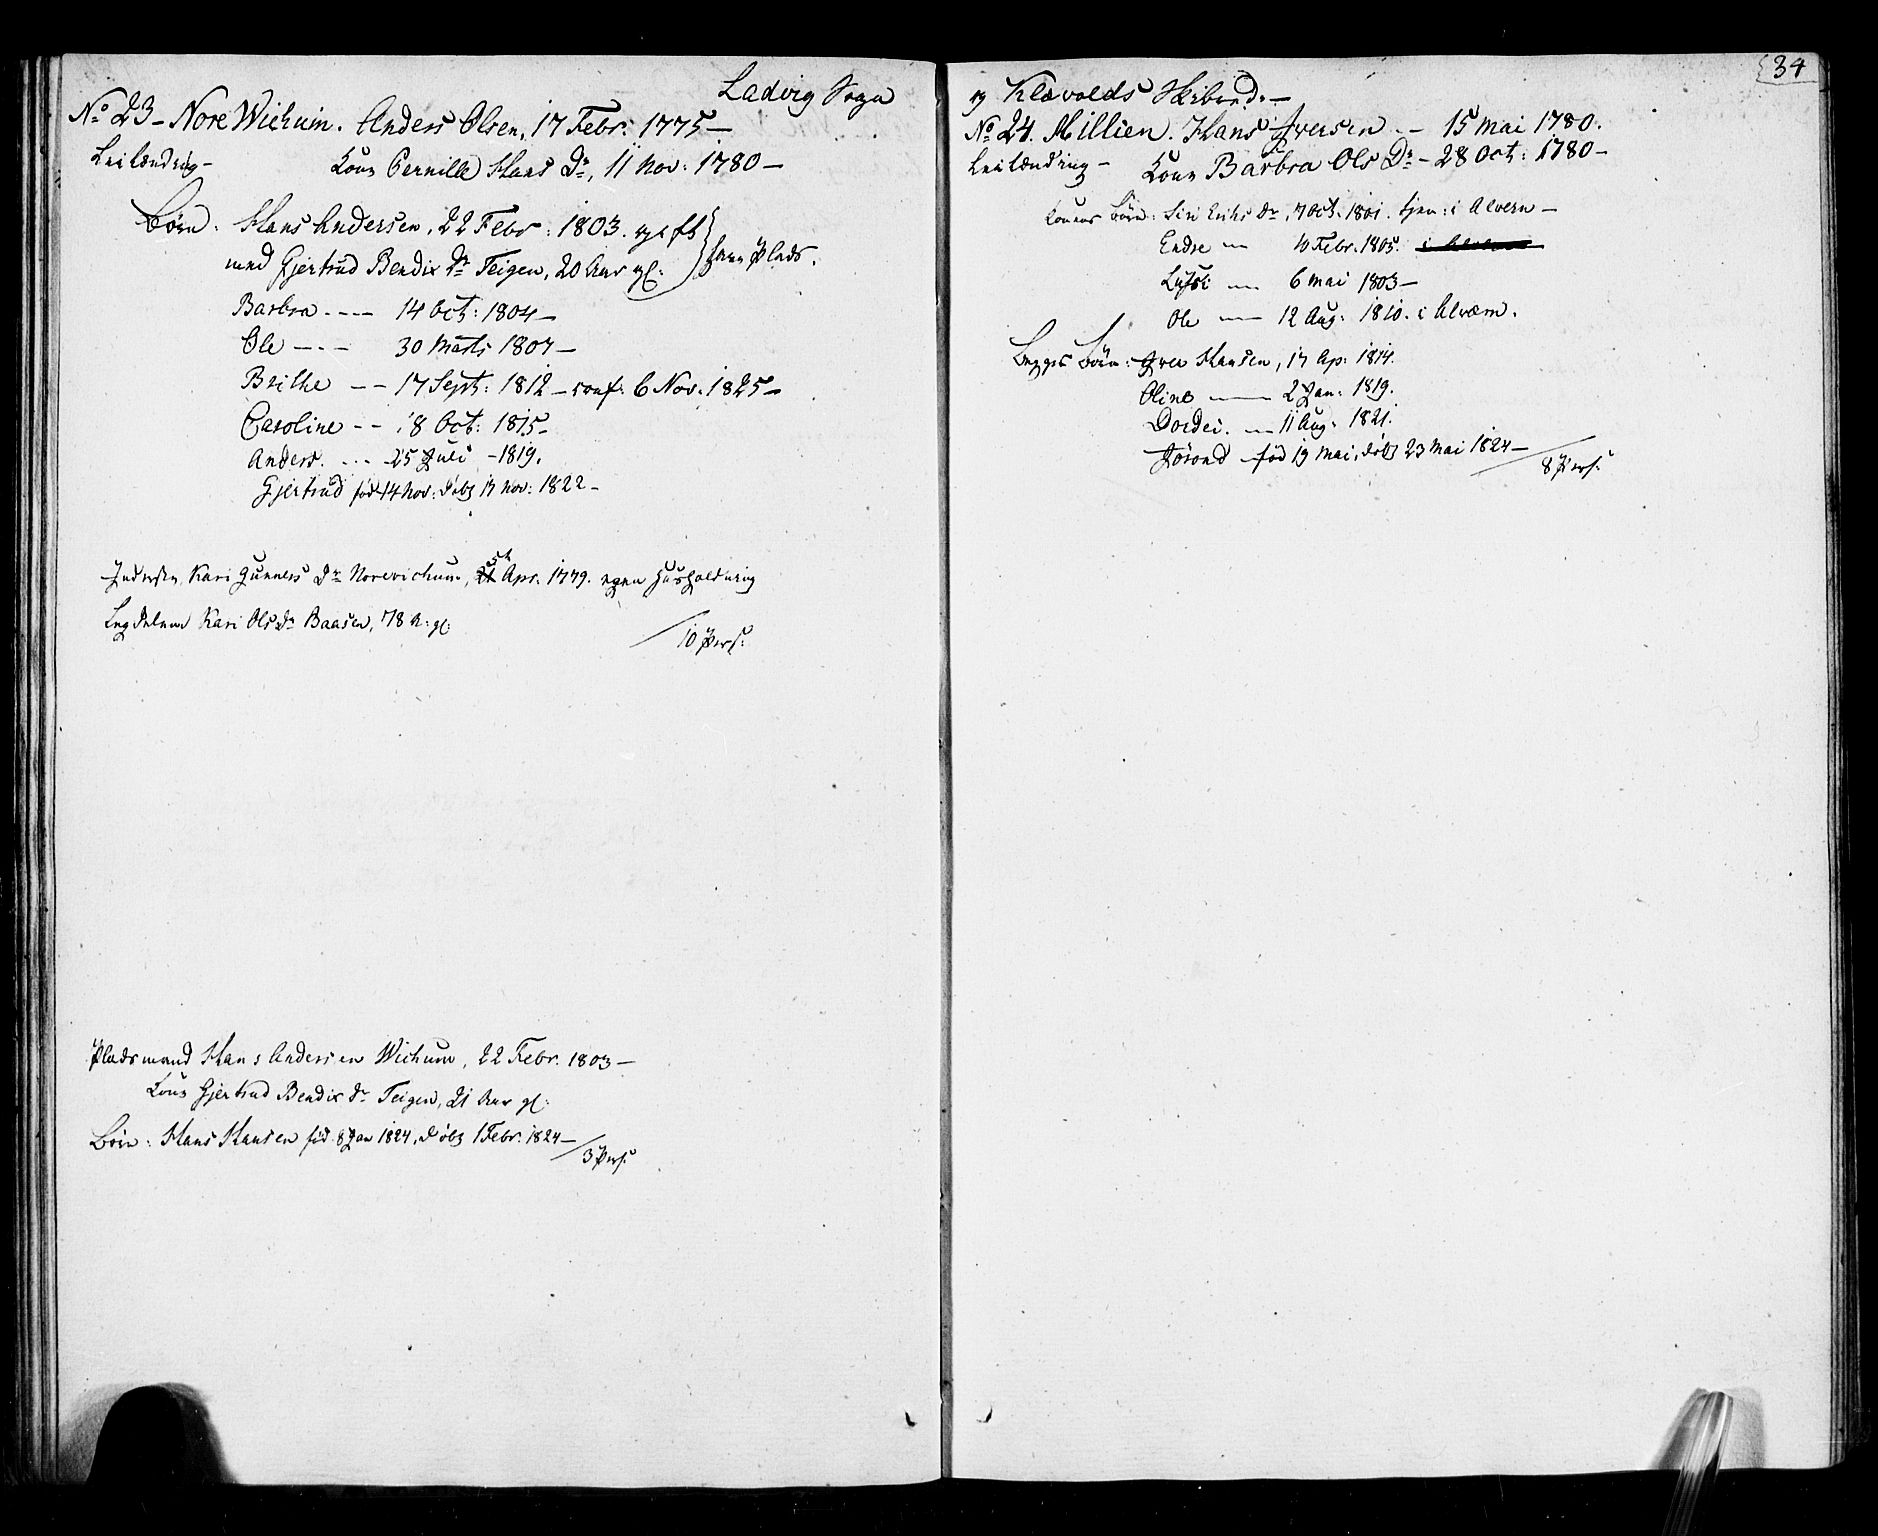 Ladvig Sogn
No 23 - Nore Wichum. Anders Olsen, 17 Febr: 1775 -
Leilænding - Kone Pernille Hans Dr, 11 Nov: 1780 -
Børn: Hans Andersen, 22 Febr: 1803. gift
med Gjertrud Bendix dr Teigen, 20 Aar gl: } paa Plads.
Barbra - - - 14 Oct: 1804 -
Ole - - - 30 Marts 1807 -
Brithe - - 17 Sept: 1812 - conf: 6 Nov. 1825 -
Caroline - - 18 Oct: 1815 -
Anders. - - - 25 Juli - 1819.
Gjertrud fød 14 Nov: døbt 17 Nov: 1822 -
Inderster, Kari Gunners Dr Norevichum, 5te Apr. 1779. egen Huusholdning
Lægdelem Kari Ols dr Baasen, 78 A: gl:
/ 10 Pers:
Pladsmand Hans Andersen Wichum, 22 Febr. 1803 -
Kone Gjertrud Bendix dr Teigen, 21 Aar gl:
Børn: Hans Hansen fød 8 Jan 1824, døbt 1 Febr. 1824 -
/ 3 Pers:
34
og Klævolds Skibred. -
No 24. Millien. Hans Iversen - - 15 Mai 1780.
Leilænding - Kone Barbra Ols Dr - 28 Oct: 1780 -
Konens Børn: Siri Eriks Dr, 7 Oct: 1801. tjen: i Alvern -
Endre — 10 Febr. 1805.
Lussi — 6 Mai 1803 -
Ole — 12 Aug: 1810. i Alværn.
Begges Børn: Iver Hansen, 17 Ap: 1814.
Oline — 2 Jan: 1819.
Dordei. — 11 Aug: 1821.
Jørond fød 19 Mai, døbt 23 Mai 1824 -
/ 8 Pers: